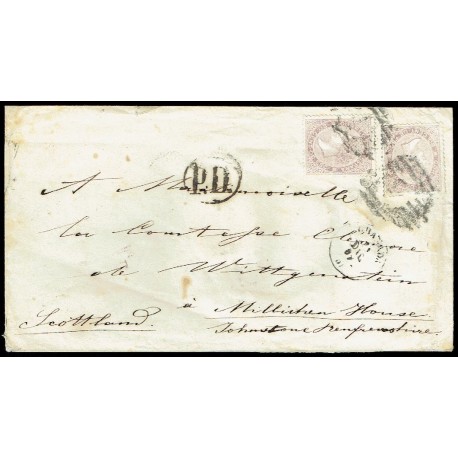 P.D.
A Mademoiselle
la Comtesse
de Wittgenstein
à Milliken House
Johnstone Renfrewshire.
Scottland.